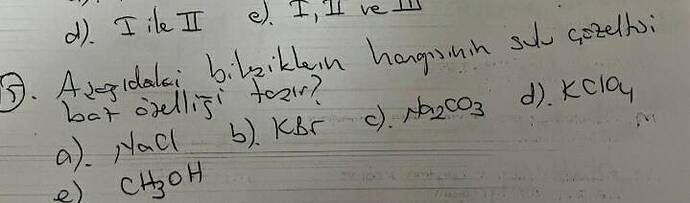 d). I ile II e). I, II ve III
5. Aşağıdaki bileşiklerin hangisinin sulu çözeltisi
baz özelliği taşır?
a). NaCl b). KBr c). Na2CO3 d). KClO4
e) CH3OH